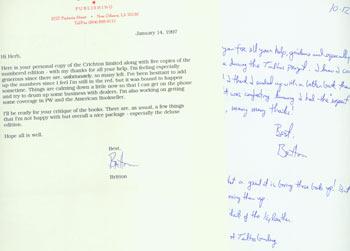 PUBLISHING
2037 Peniston Street • New Orleans, LA 70130
10-12
January 14, 1997
Hi Herb,
Here is your personal copy of the Crichton limited along with five copies of the
numbered edition - with my thanks for all your help. I'm feeling especially
generous since there are, unfortunately, so many left. I've been hesitant to add
up the numbers since I feel I'm still in the red, but it was bound to happen
sometime. Things are calming down a little now so that I can get on the phone
and try to drum up some business with dealers. I'm also working on getting
some coverage in PW and the American Bookseller.
I'll be ready for your critique of the books. There are, as usual, a few things
that I'm not happy with but overall a nice package - especially the deluxe
edition.
Hope all is well.
Best,
Britton
Britton
you for all your help, guidance and especially
during the
I think I ended up with a better book than
it was comforting knowing I had the "expert"
many, many thanks.
Best,
Britton